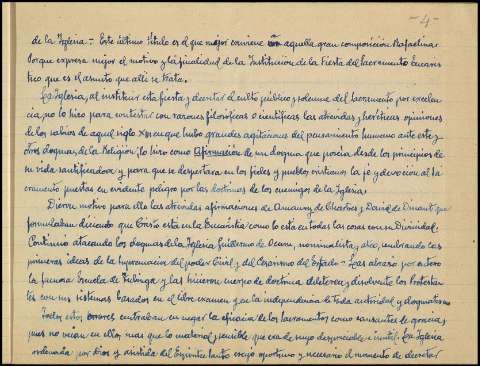 -4-
de la Iglesia.- Este último título es el que mejor conviene a aquella gran composición Rafaelina
Porque expresa mejor el motivo y la finalidad de la Institución de la Fiesta del Sacramento Eucaris
tico que es el asunto que allí se trata.
La Iglesia, al instituir esta fiesta y decretar el culto público y solemne del Sacramento por excelen
cia, no lo hizo para contestar con razones filosóficas o científicas las atrevidas y heréticas opiniones
de los sabios de aquel siglo XIII en que hubo grandes agitaciones del pensamiento humano ante este y
otros dogmas de la Religión; lo hizo como Afirmación de un dogma que poseía desde los principios de
su vida santificadora y para que se despertara en los fieles y pueblos cristianos la fe y devoción al Sa
cramento puestas en evidente peligro por las doctrinas de los enemigos de la Iglesia.
Dieron motivo para ello las atrevidas afirmaciones de Amaury de Chartres y David de Dinant que
formulaban diciendo que Cristo está en la Eucaristía como lo está en todas las cosas con su Divinidad.
Continuó atacando los dogmas de la Iglesia, Guillermo de Ocam, nominalista, y ateo, sembrando las
primeras ideas de la supremacía del poder Civil y del Cesarismo del Estado.- Las abrazó por entero
la famosa Escuela de y las hicieron cuerpo de doctrina deletérea y disolvente los Protestan
tes con sus sistemas basados en el libre examen y en la independencia de toda autoridad y dogmatismo
Todos estos errores entraban en negar la eficacia de los Sacramentos como causantes de gracia,
pues no veían en ellos mas que lo material y sensible que era de suyo despreciable e inútil. La Iglesia
ordenada por Dios y asistida del Espíritu Santo escogió oportuno y necesario el momento de decretar